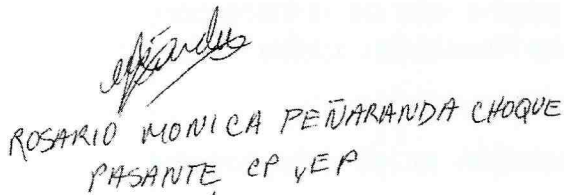 ROSARIO MONICA PEÑARANDA CHOQUE
PASANTE CP y EP